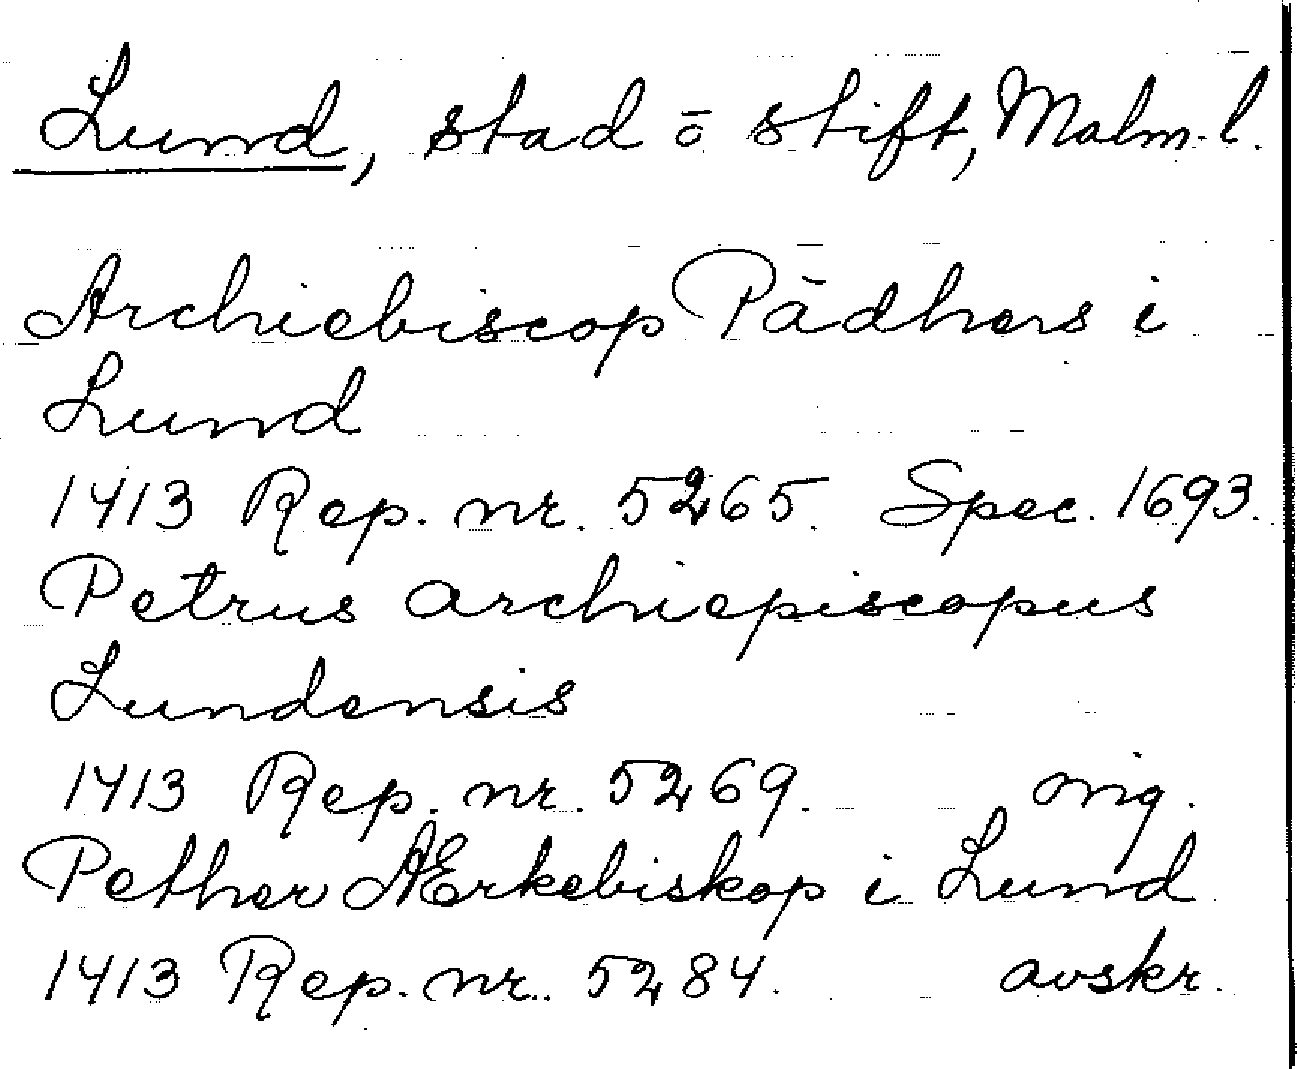 Lund, stad ō stift, Malm. l.
Archiebiscop Pādhers i
Lund
1413 Rep. nr. 5265. Spec. 1693.
Petrus archiepiscopus
Lundensis
1413 Rep. nr. 5269. orig.
Pether Ærkebiskop i Lund
1413 Rep. nr. 5284. avskr.